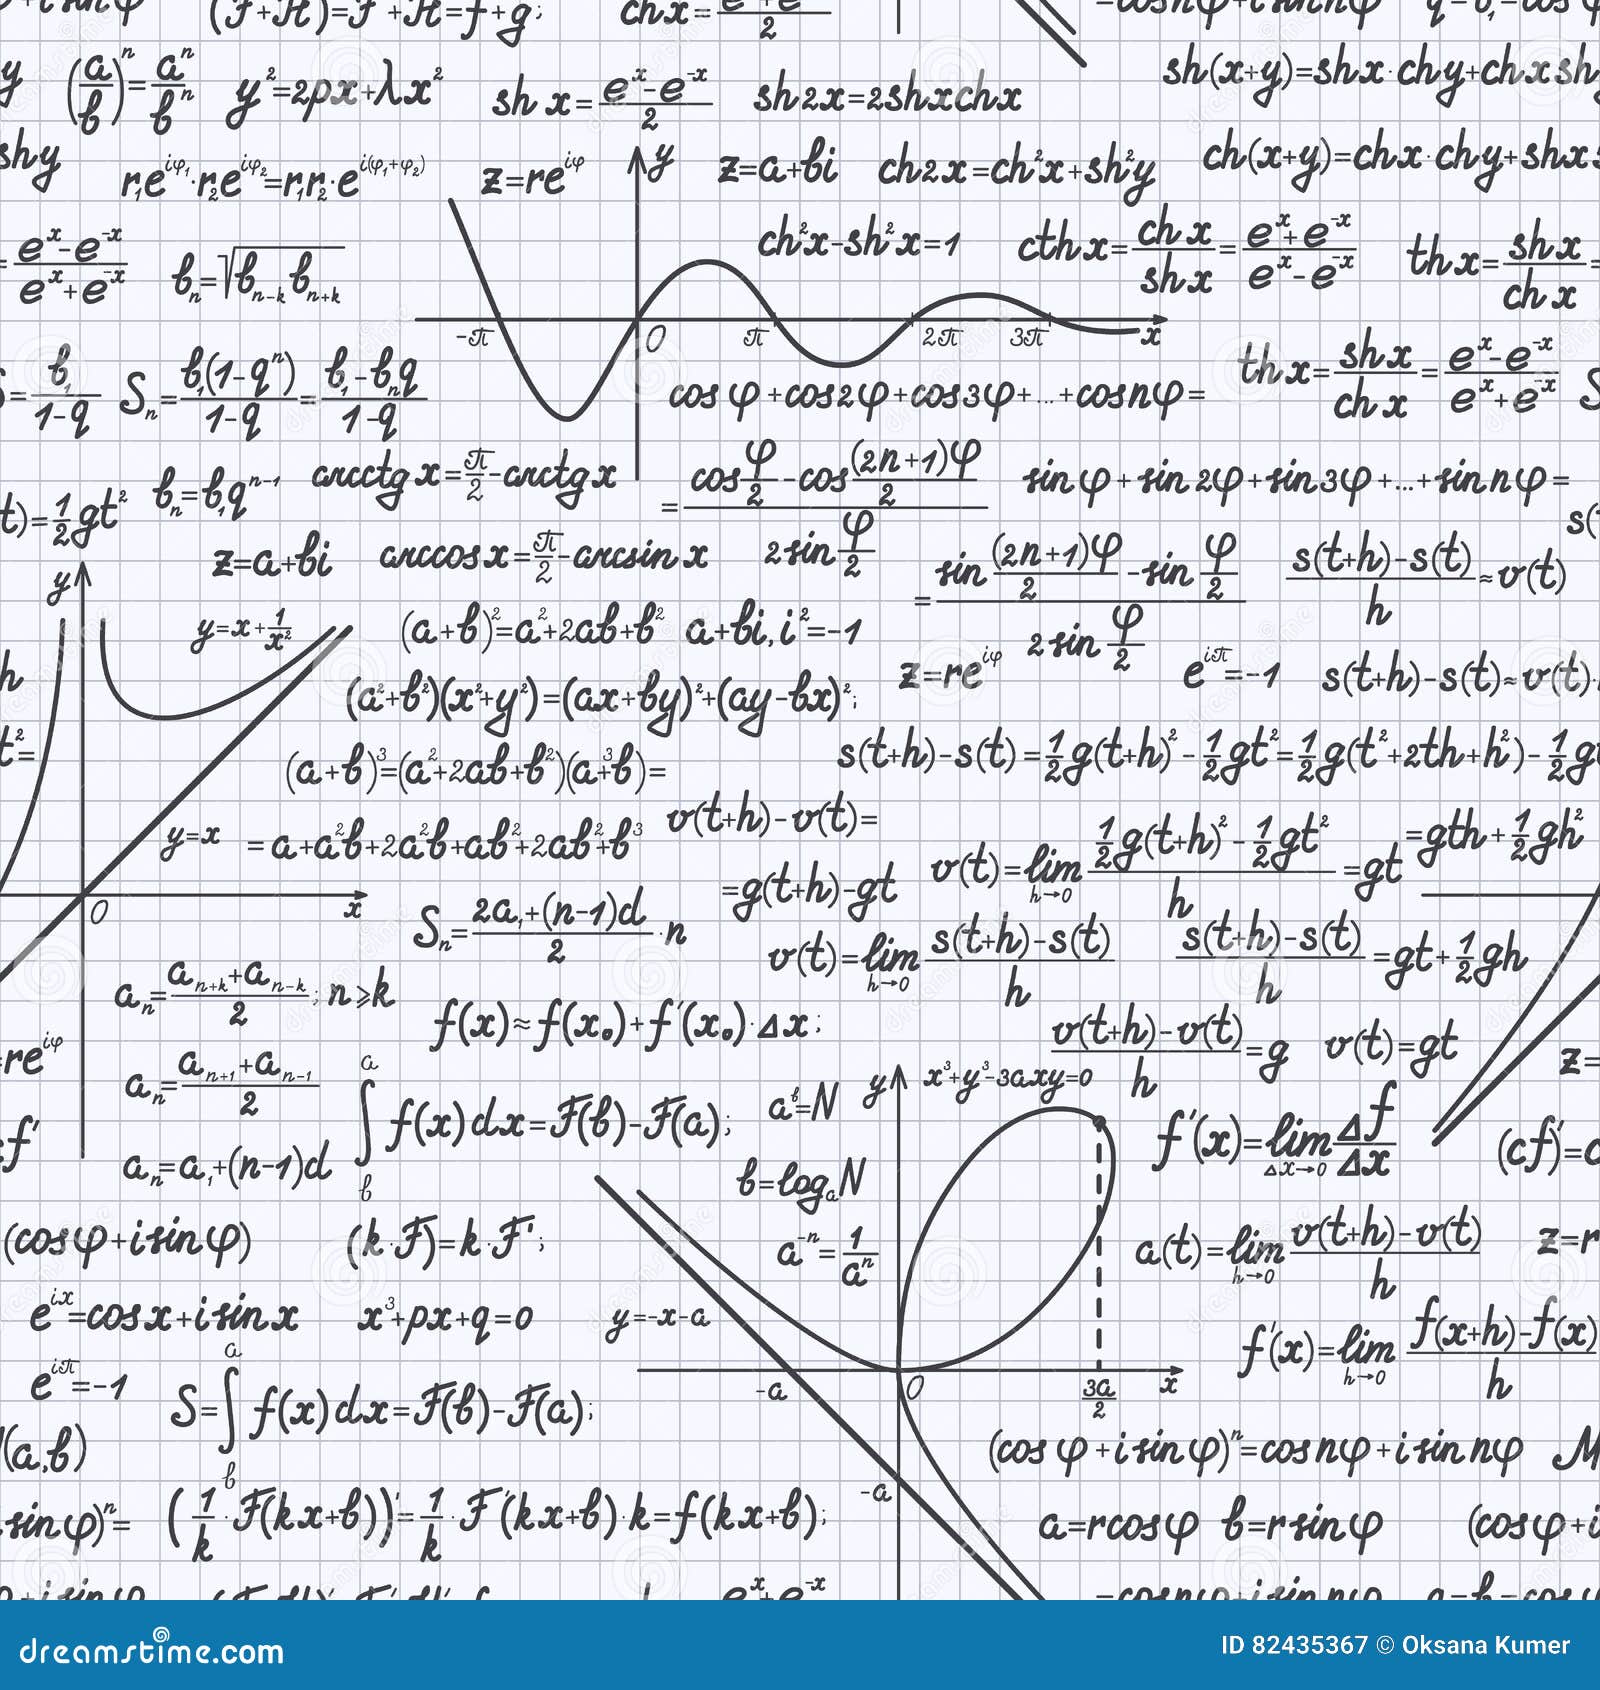 (a/b)ⁿ=aⁿ/bⁿ
y²=2px+λx²
sh x=(eˣ-e⁻ˣ)/2
sh2x=2shxchx
sh(x+y)=shx·chy+chx sh
shy
r₁e^(iφ₁)·r₂e^(iφ₂)=r₁r₂·e^(i(φ₁+φ₂))
z=re^(iφ)
y
z=a+bi
ch2x=ch²x+sh²y
ch(x+y)=chx·chy+shx
=(eˣ-e⁻ˣ)/(eˣ+e⁻ˣ)
bₙ=√(bₙ₋ₖ bₙ₊ₖ)
ch²x-sh²x=1
cthx=chx/shx=(eˣ+e⁻ˣ)/(eˣ-e⁻ˣ)
thx=shx/chx=
-π O π 2π 3π x
S=b₁/(1-q)
Sₙ=b₁(1-qⁿ)/(1-q)=(b₁-bₙq)/(1-q)
cosφ+cos2φ+cos3φ+...+cosnφ=
thx=shx/chx=(eˣ-e⁻ˣ)/(eˣ+e⁻ˣ)
t)=½gt²
bₙ=b₁qⁿ⁻¹
arcctgx=π/2-arctgx
=(cos φ/2-cos (2n+1)φ/2)/(2sin φ/2)
sinφ+sin2φ+sin3φ+...+sinnφ=
z=a+bi
arccosx=π/2-arcsinx
=(sin (2n+1)φ/2-sin φ/2)/(2sin φ/2)
(s(t+h)-s(t))/h≈v(t)
y
y=x+1/x²
(a+b)²=a²+2ab+b²
a+bi, i²=-1
z=re^(iφ)
e^(iπ)=-1
s(t+h)-s(t)≈v(t)·
(a²+b²)(x²+y²)=(ax+by)²+(ay-bx)²;
t²=
(a+b)³=(a²+2ab+b²)(a³+b)=
s(t+h)-s(t)=½g(t+h)²-½gt²=½g(t²+2th+h²)-½gt
y=x
=a+a²b+2a²b+ab²+2ab²+b³
v(t+h)-v(t)=
=g(t+h)-gt
v(t)=lim h→0 (½g(t+h)²-½gt²)/h=gt
=gth+½gh²
O x
Sₙ=(2a₁+(n-1)d)/2·n
v(t)=lim h→0 (s(t+h)-s(t))/h
(s(t+h)-s(t))/h=gt+½gh
aₙ=(aₙ₊ₖ+aₙ₋ₖ)/2; n⩾k
f(x)≈f(x₀)+f'(x₀)·Δx;
(v(t+h)-v(t))/h=g
v(t)=gt
z=
re^(iφ)
aₙ=(aₙ₊₁+aₙ₋₁)/2
∫ₐᵇ f(x)dx=F(b)-F(a);
aᵇ=N
y
x³+y³-3axy=0
f'(x)=lim Δx→0 Δf/Δx
(cf)'=c
=f'
aₙ=a₁+(n-1)d
b=logₐN
(cosφ+isinφ)
(k·F)=k·F';
a⁻ⁿ=1/aⁿ
a(t)=lim h→0 (v(t+h)-v(t))/h
z=r
e^(ix)=cosx+isinx
x³+px+q=0
y=-x-a
f'(x)=lim h→0 (f(x+h)-f(x))/h
e^(iπ)=-1
S=∫ₐᵇ f(x)dx=F(b)-F(a);
-a O 3a/2 x
(a,b)
(cosφ+isinφ)ⁿ=cosnφ+isinnφ
M
-a
sinφ)ⁿ=
(1/k·F(kx+b))'=1/k·F'(kx+b)·k=f(kx+b);
a=rcosφ
b=rsinφ
(cosφ+i
dreamstime.com
ID 82435367 © Oksana Kumer